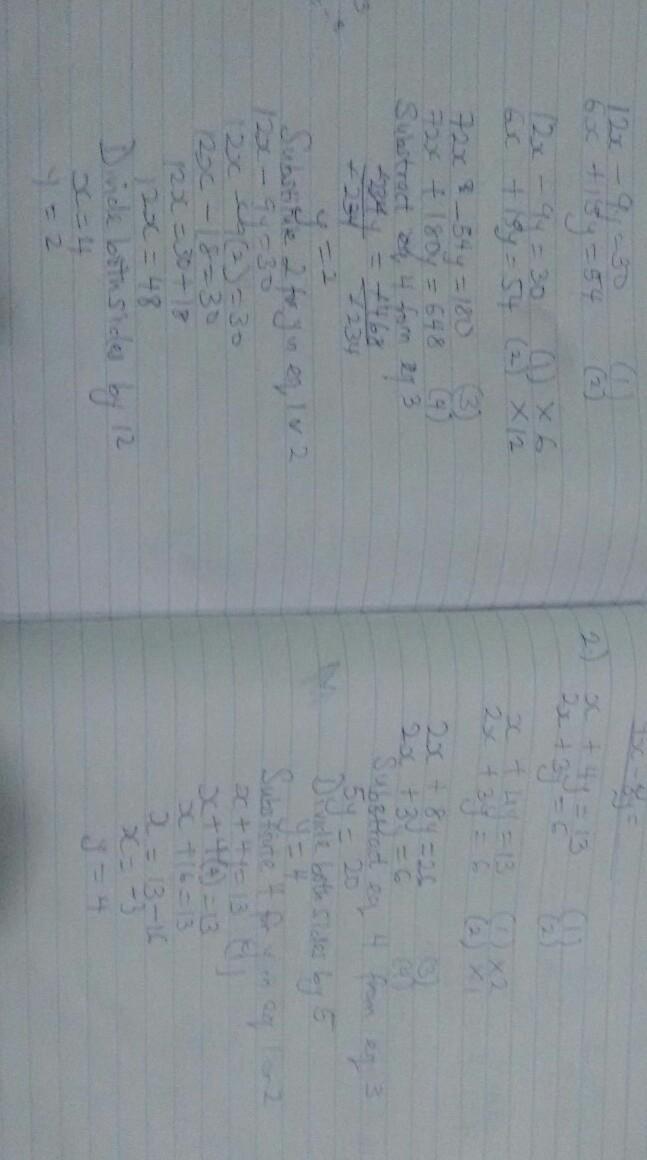 12x - 9y = 30 (1)
6x + 15y = 54 (2)
12x - 9y = 30 (1) x 6
6x + 15y = 54 (2) x 12
72x - 54y = 180 (3)
72x + 180y = 648 (4)
Substract eq 4 from eq 3
y = 2
Substitue 2 for y in eq 1 or 2
12x - 9y = 30
12x - 9(2) = 30
12x - 18 = 30
12x = 30 + 18
12x = 48
Divide both sides by 12
x = 4
y = 2
2) x + 4y = 13 (1)
2x + 3y = 6 (2)
x + 4y = 13 (1) x 2
2x + 3y = 6 (2) x 1
2x + 8y = 26 (3)
2x + 3y = 6 (4)
Substract eq 4 from eq 3
5y = 20
Divide both sides by 5
y = 4
Substitue 4 for y in eq 1 or 2
x + 4y = 13 (1)
x + 4(4) = 13
x + 16 = 13
x = 13 - 16
x = -3
y = 4